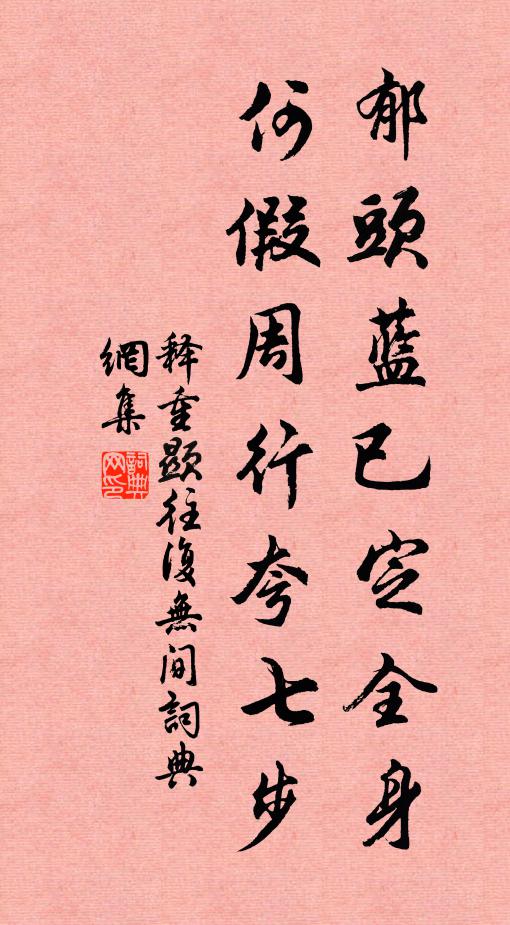 郁頭藍已定全身
何假周行夸七步
释重顯往復無间詞典
網集
詞典
网印